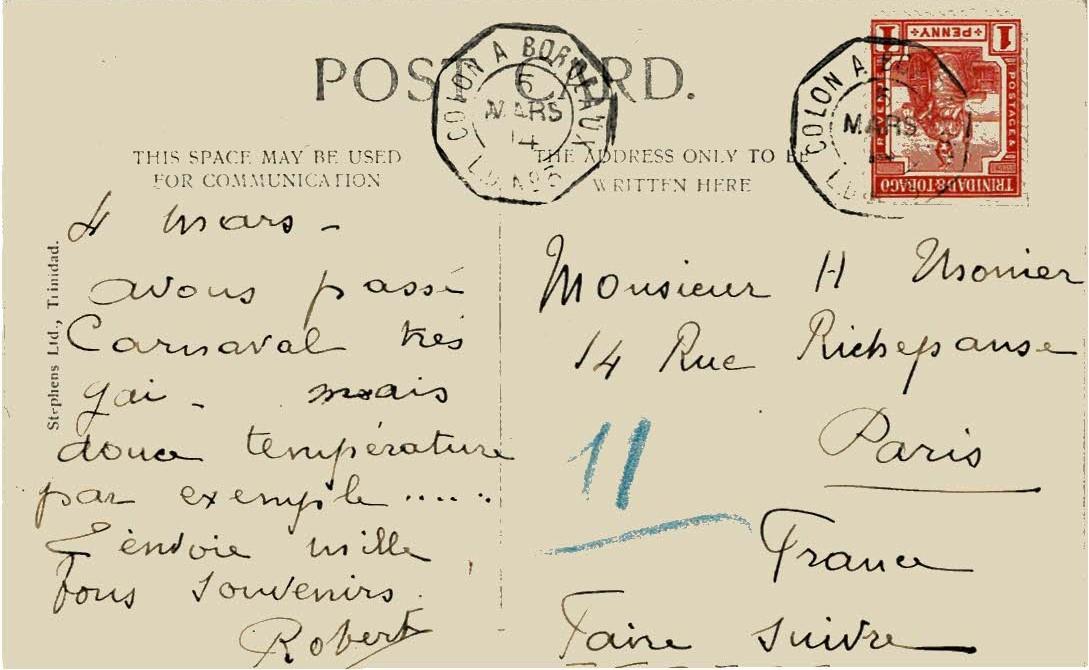 POST CARD.
THIS SPACE MAY BE USED
FOR COMMUNICATION
THE ADDRESS ONLY TO BE
WRITTEN HERE
COLON A BORDEAUX
5
MARS
14
L.D. No 6
COLON A BO
5
MARS
L.D.
1 PENNY 1
POSTAGE &
TRINIDAD & TOBAGO
Stephens Ltd., Trinidad.
4 mars -
avons passé
Carnaval très
gai - mais
douce température
par exemple .....
T'envoie mille
bons souvenirs.
Robert
Monsieur H Monier
14 Rue Richepanse
Paris
France
Faire suivre
11